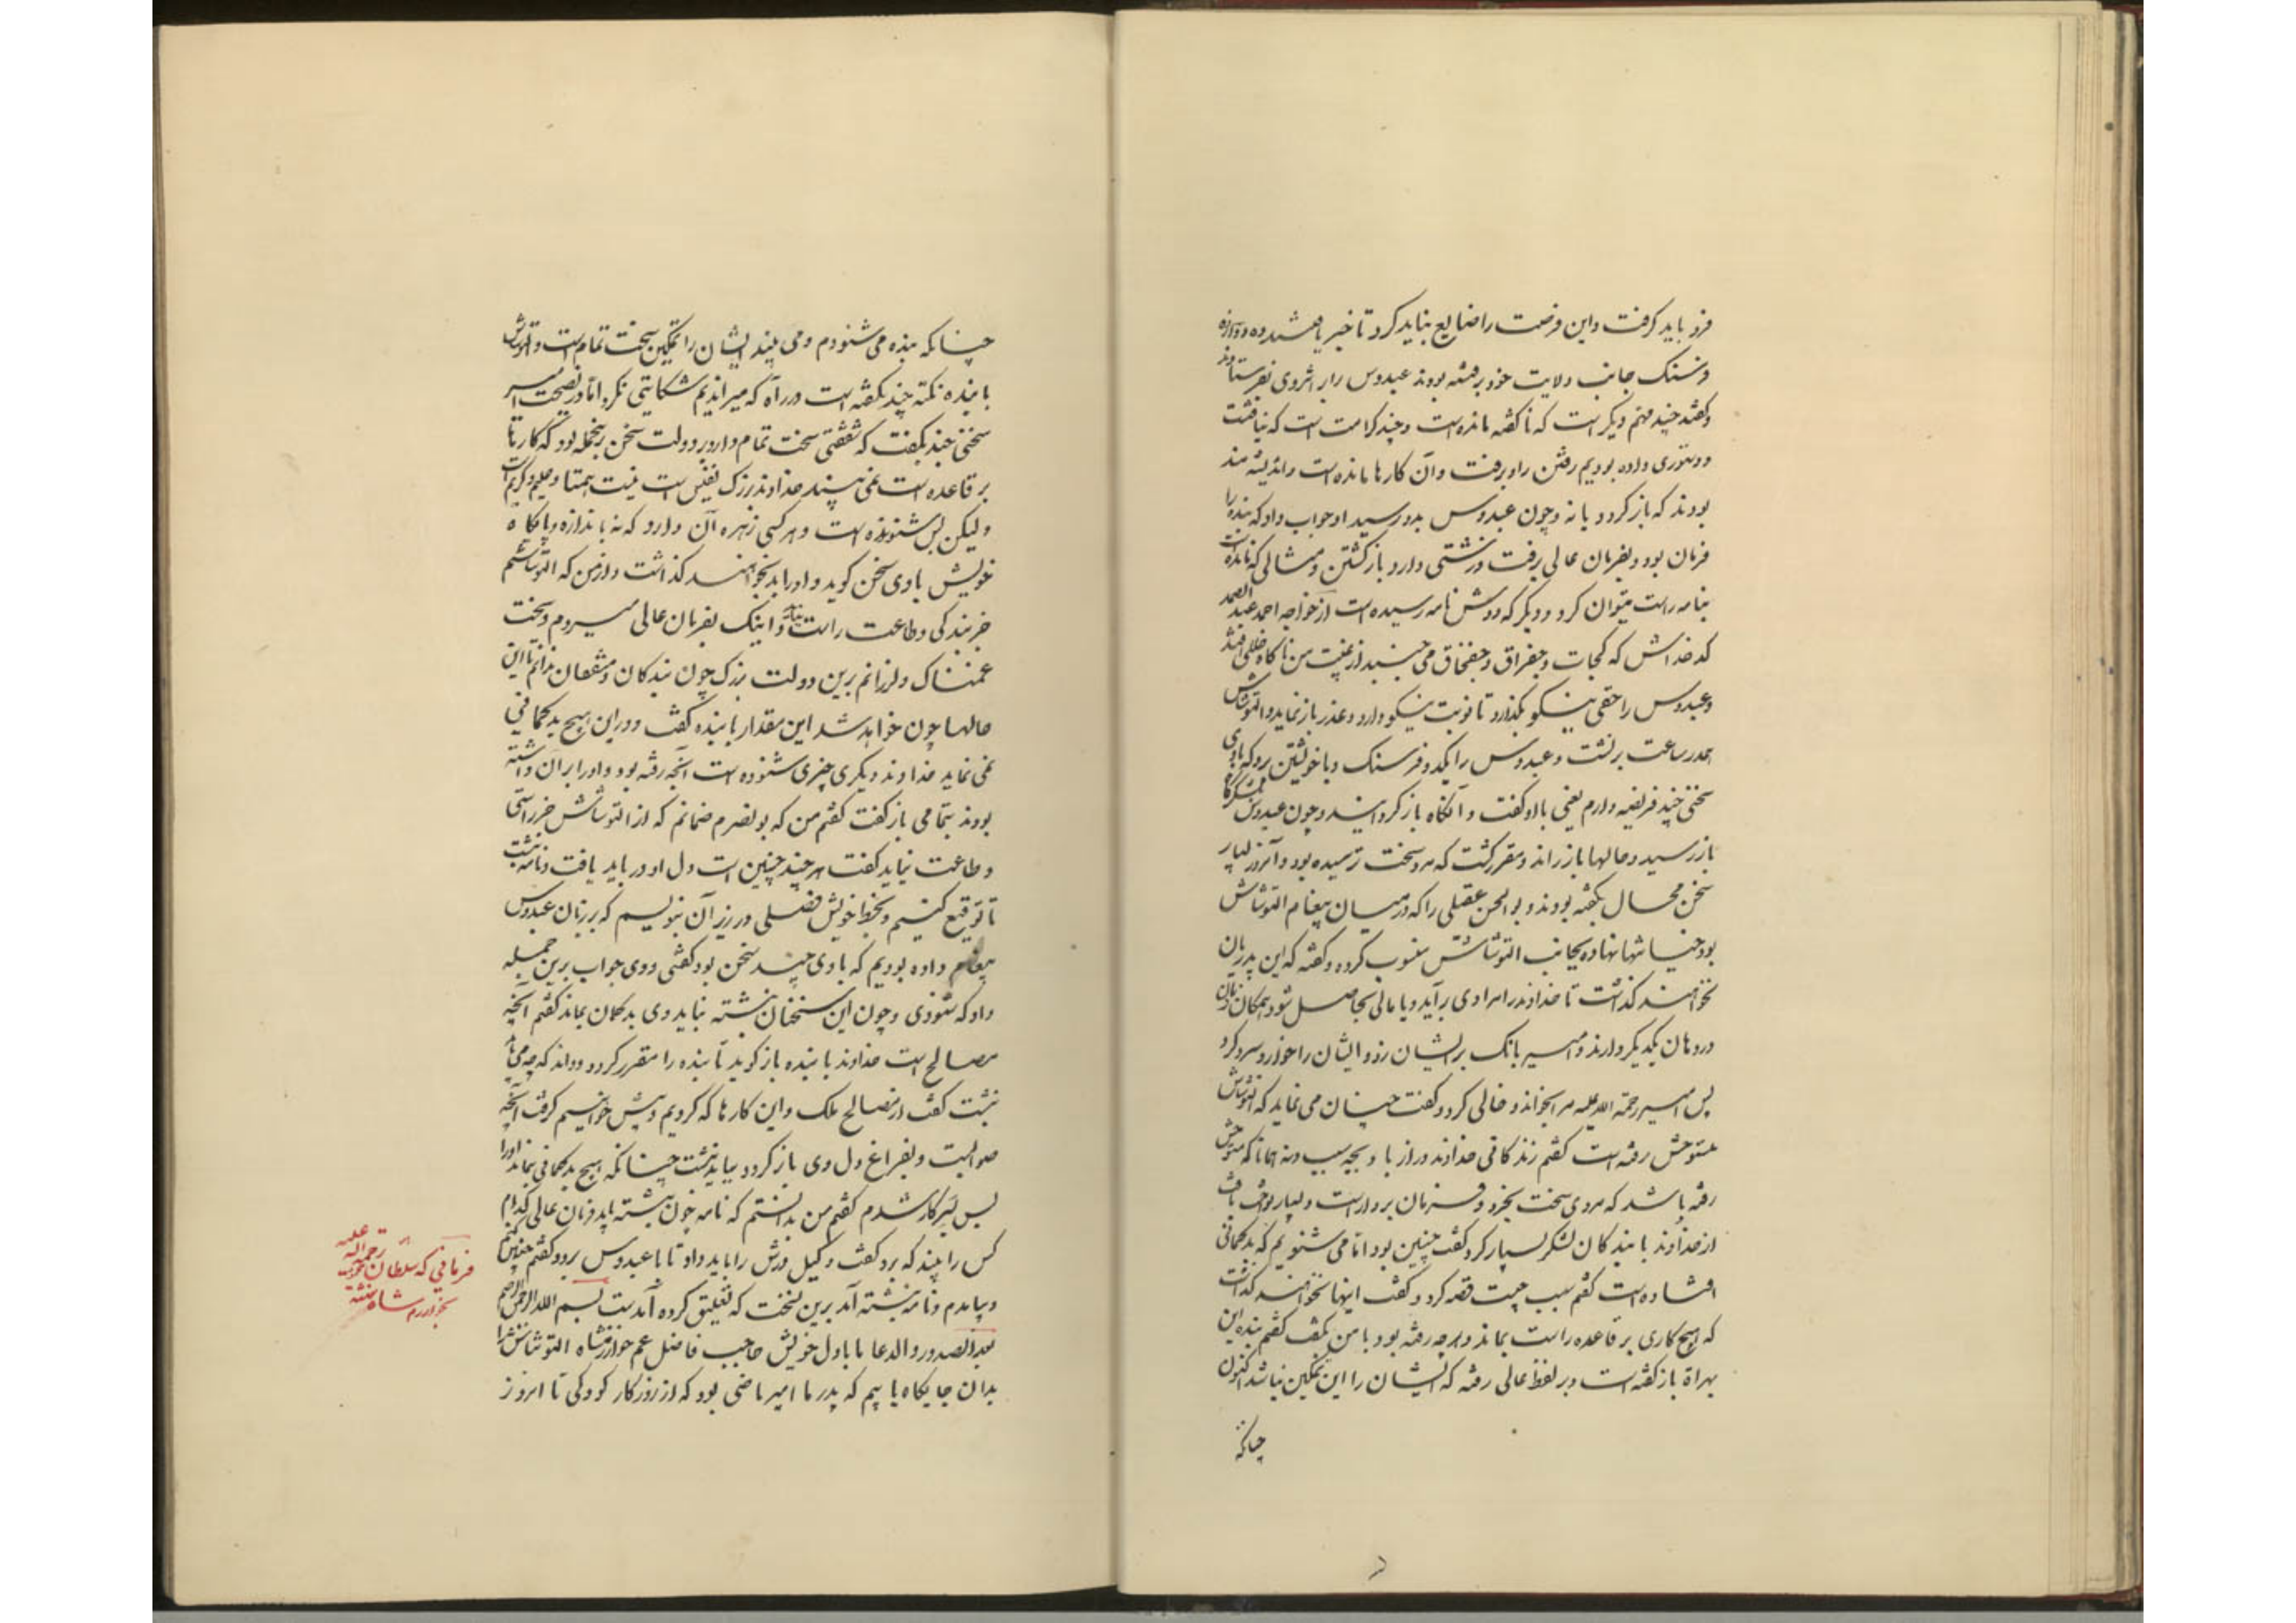 فرو باید کرفت واین فرصت را ضایع نباید کرد تا خبر یافتند ده دوازده
فرسنک جانب ولایت خود برفته بودند عبدوس را بر اثر وی بفرستادند
وکفتند چند مهم دیکر است که ناکفته مانده است وچند کرامت است که نیافتست
ودستوری داده بودیم رفتن را وبرفت وآن کارها مانده است واندیشه مند
بودند که باز کردد یا نه وچون عبدوس بدو رسید او جواب داد که بنده را
فرمان بود وبفرمان عالی برفت وزشتی دارد باز کشتن ومثالی که مانده است
بنامه راست میتوان کرد ودیکر که دوش نامه رسیده است از خواجه احمد عبد الصمد
کدخداش که کجات وجغراق وجفخاق می جنبند از غیبت من ناکاه خللی افتد
وعبدوس را حقی نیکو بکذارد تا نوبت نیکو دارد وعذر باز نماید والتونتاش
همدر ساعت برنشت وعبدوس را یکدو فرسنک وبا خویشتن برد که با وی
سخنی چند فریضه دارم یعنی با او کفت وآنکاه باز کردانید وچون عبدوس بلشکرکاه
باز رسید وحالها باز راند ومقرر کشت که مرد سخت ترسیده بود وآنروز بسیار
سخن محال بکفته بودند وبو الحسن عقیلی را که در میان پیغام التونتاش
بود خیانتها نهاده بجانب التونتاش منسوب کرده وکفته که این پدریان
نخواهند کذاشت تا خداوند را مرادی برآید ویا مالی بحاصل شود وهمکان زبان
در دهان یکدیکر دارند وامیر بانک بر ایشان زد وایشان را خوار وسرد کرد
پس امیر رحمة الله علیه مرا بخواند وخالی کرد وکفت چنان می نماید که التونتاش
مستوحش رفته است کفتم زندکانی خداوند دراز باد وبچه سبب ونه همانا که مستوحش
رفته باشد که مردی سخت بخرد وفرمان بردار است وبسیار نواخت یافت
از خداوند با بندکان شکر بسیار کرد کفت چنین بود اما می شنویم که بدکمانی
افتاده است کفتم سبب چیست قصه کرد وکفت اینها نخواهند کذاشت
که هیچ کاری بر قاعده راست بماند وهرچه رفته بود با من بکفت کفتم بنده این
بهراة باز کفته است وبر لفظ عالی رفته که ایشان را این تمکین نباشد اکنون
چنانکه
چنانکه بنده می شنودم ومی بیند ایشان را تمکین سخت تمام است والتونتاش
با بنده نکته چند بکفته است در راه که میراندیم شکایتی نکرد اما در نصیحت امیر
سخنی چند بکفت که شفقتی سخت تمام دارد بر دولت سخن برینجمله بود که کارتا
بر قاعده است نمی بیند خداوند بزرک نفیس است نیست همتا وحلیم وکریم است
ولیکن بس شنونده است وهر کسی زهره آن دارد که نه باندازه وپایکاه
خویش با وی سخن کوید واورا بد نخواهند کذاشت واز من که التونتاشم
جز بندکی وطاعت راست نیاید واینک بفرمان عالی میروم وسخت
غمناک ولرزانم برین دولت بزرک چون بندکان ومشفقان ندانم تا این
حالها چون خواهد شد این مقدار با بنده کفت ودرین هیچ بدکمانی
نمی نماید خداوند دیکری چیزی شنوده است آنچه رفته بود واورا بر آن داشته
بودند بتمامی باز کفت کفتم من که بو نصرم ضمانم که از التونتاش جز راستی
وطاعت نیاید کفت هر چند چنین است دل او در باید یافت ونامه نبشت
تا توقیع کنیم وبخط خویش فصلی در زیر آن بنویسم که بر زبان عبدوس
پیغام داده بودیم که با وی چند سخن بود کفتنی ووی جواب برین جمله
داد که شنودی وچون این سخنان نبشته نیاید وی بدکمان بماند کفتم آنچه
مصالح است خداوند با بنده باز کوید تا بنده را مقرر کردد وداند که چه می باید
نبشت کفت از مصالح ملک واین کارها که کردیم وپیش خواهیم کرفت آنچه
صوابست وبفراغ دل وی باز کردد بباید نبشت چنانکه هیچ بدکمانی نماند اورا
پس بسر کار شدم کفتم من بدانستم که نامه چون نبشته آید فرمان عالی کدام
کس را بیند که برد کفت وکیل درش را باید داد تا با عبدوس برود کفتم چنین کنم
وبیامدم ونامه نبشته آمد برین نسخت که تعلیق کرده آمدست بسم الله الرحمن الرحیم
بعد الصدر والدعا ما با دل خویش حاجب فاضل عم خوارزمشاه التونتاش را
بدان جایکاه یابیم که پدر ما امیر ماضی بود که از روزکار کودکی تا امروز
فرمانی که سلطان رحمة الله علیه
بخوارزم شاه نبشته